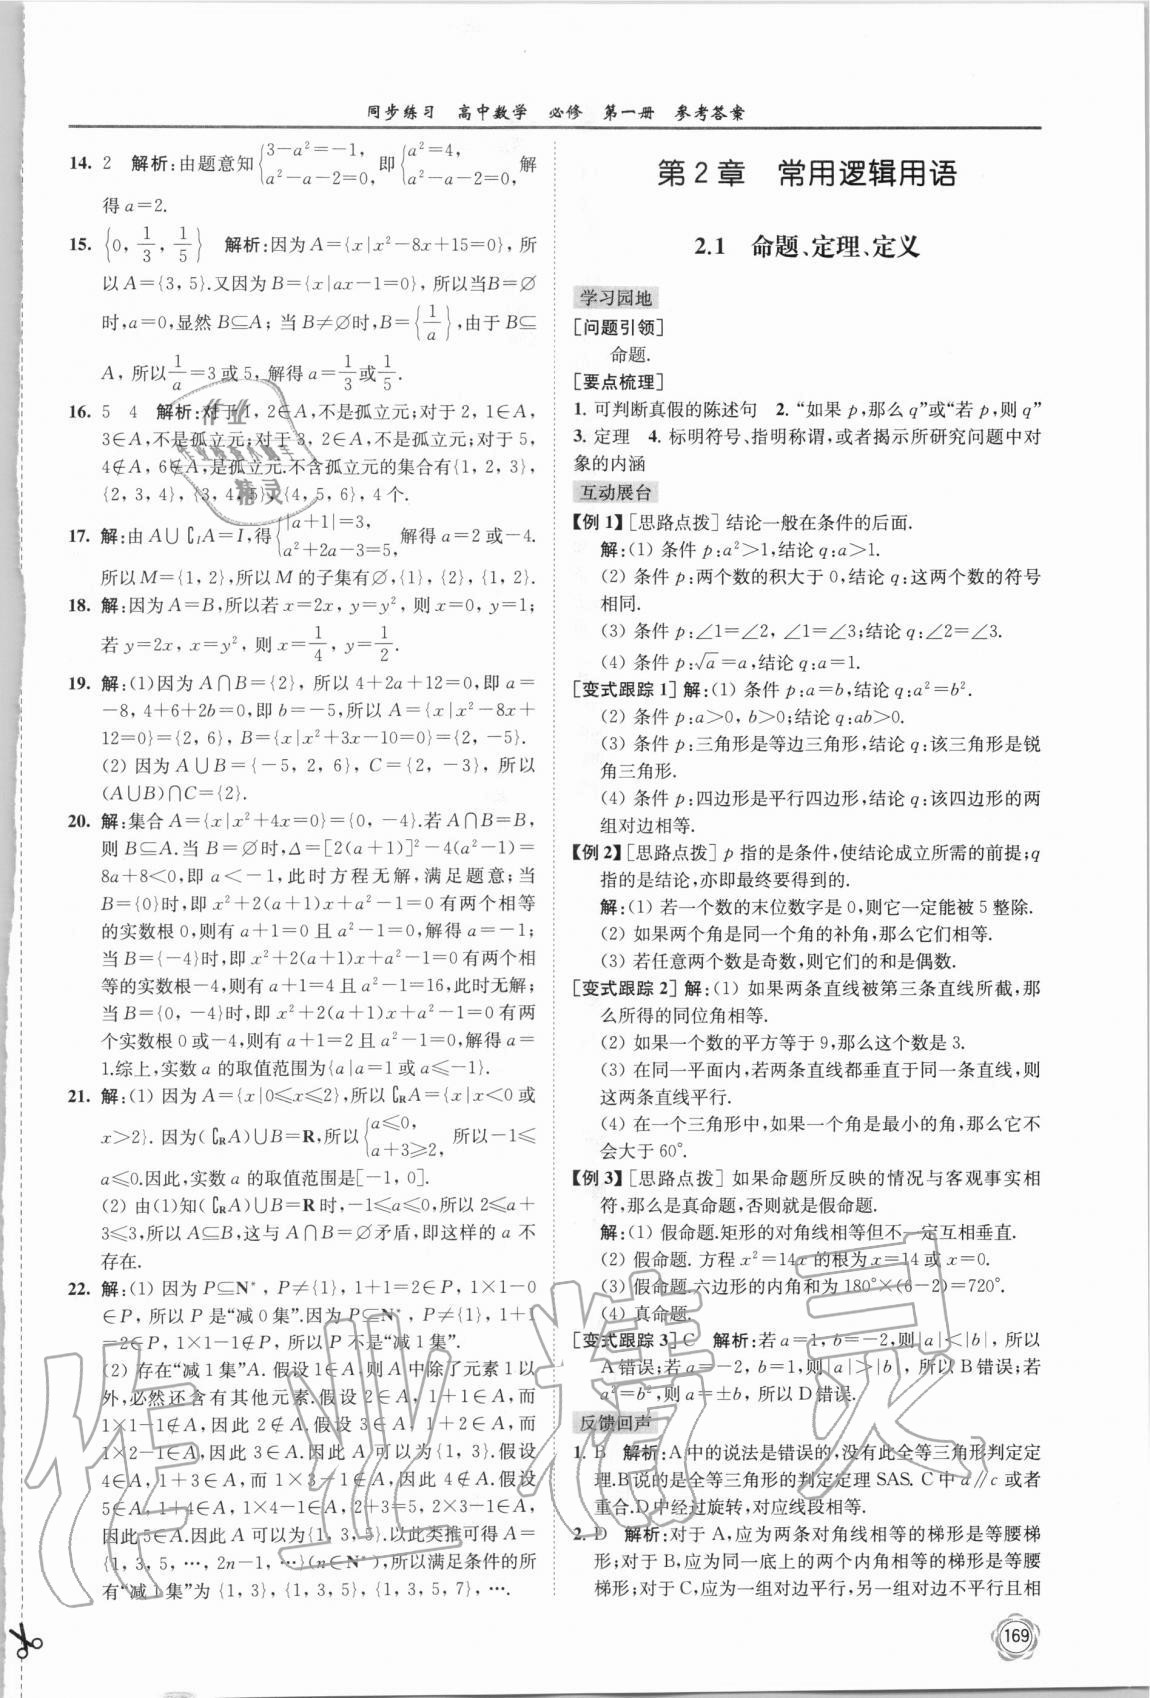 同步练习 高中数学 必修 第一册 参考答案
14. 2 解析:由题意知{3-a²=-1, a²-a-2=0, 即{a²=4, a²-a-2=0, 解
得a=2.
15. {0, 1/3, 1/5} 解析:因为A={x|x²-8x+15=0},所
以A={3,5}.又因为B={x|ax-1=0},所以当B=∅
时,a=0,显然B⊆A;当B≠∅时,B={1/a},由于B⊆
A,所以1/a=3或5,解得a=1/3或1/5.
16. 5 4 解析:对于1,2∈A,不是孤立元;对于2,1∈A,
3∈A,不是孤立元;对于3,2∈A,不是孤立元;对于5,
4∉A,6∉A,是孤立元.不含孤立元的集合有{1,2,3},
{2,3,4},{3,4,5},{4,5,6},4个.
17. 解:由A∪∁IA=I,得{|a+1|=3, a²+2a-3=5, 解得a=2或-4.
所以M={1,2},所以M的子集有∅,{1},{2},{1,2}.
18. 解:因为A=B,所以若x=2x,y=y²,则x=0,y=1;
若y=2x,x=y²,则x=1/4,y=1/2.
19. 解:(1)因为A∩B={2},所以4+2a+12=0,即a=
-8,4+6+2b=0,即b=-5,所以A={x|x²-8x+
12=0}={2,6},B={x|x²+3x-10=0}={2,-5}.
(2) 因为A∪B={-5,2,6},C={2,-3},所以
(A∪B)∩C={2}.
20. 解:集合A={x|x²+4x=0}={0,-4}.若A∩B=B,
则B⊆A.当B=∅时,Δ=[2(a+1)]²-4(a²-1)=
8a+8<0,即a<-1,此时方程无解,满足题意;当
B={0}时,即x²+2(a+1)x+a²-1=0有两个相等
的实数根0,则有a+1=0且a²-1=0,解得a=-1;
当B={-4}时,即x²+2(a+1)x+a²-1=0有两个相
等的实数根-4,则有a+1=4且a²-1=16,此时无解;
当B={0,-4}时,即x²+2(a+1)x+a²-1=0有两
个实数根0或-4,则有a+1=2且a²-1=0,解得a=
1.综上,实数a的取值范围是{a|a=1或a≤-1}.
21. 解:(1) 因为A={x|0≤x≤2},所以∁RA={x|x<0或
x>2}.因为(∁RA)∪B=R,所以{a≤0, a+3≥2, 所以-1≤
a≤0.因此,实数a的取值范围是[-1,0].
(2) 由(1)知(∁RA)∪B=R时,-1≤a≤0,所以2≤a+
3≤3,所以A⊆B,这与A∩B=∅矛盾,即这样的a不
存在.
22. 解:(1) 因为P⊆N*,P≠{1},1+1=2∈P,1×1-0
∈P,所以P是“减0集”.因为P⊆N*,P≠{1},1+1
=2∈P,1×1-1∉P,所以P不是“减1集”.
(2) 存在“减1集”A.假设1∈A,则A中除了元素1以
外,必然还含有其他元素.假设2∈A,1+2∈A,而
1×1-1∉A,因此2∉A.假设3∈A,1+2∈A,而
1×2-1∈A,因此3∈A.因此A可以为{1,3}.假设
4∈A,1+3∈A,而1×3-1∉A,因此4∉A.假设
5∈A,1+4∈A,1×4-1∈A,2+3=5,2×3-1∈A,
因此5∈A.因此A可以为{1,3,5}.以此类推可得A=
{1,3,5,…,2n-1,…}(n∈N*),所以满足条件的所
有“减1集”为{1,3},{1,3,5},{1,3,5,7},….
第2章 常用逻辑用语
2.1 命题、定理、定义
学习园地
[问题引领]
命题.
[要点梳理]
1. 可判断真假的陈述句 2. “如果p,那么q”或“若p,则q”
3. 定理 4. 标明符号、指明称谓,或者揭示所研究问题中对
象的内涵
互动展台
【例1】[思路点拨] 结论一般在条件的后面.
解:(1) 条件p:a²>1,结论q:a>1.
(2) 条件p:两个数的积大于0,结论q:这两个数的符号
相同.
(3) 条件p:∠1=∠2,∠1=∠3;结论q:∠2=∠3.
(4) 条件p:√a=a,结论q:a=1.
[变式跟踪1] 解:(1) 条件p:a=b,结论q:a²=b².
(2) 条件p:a>0,b>0;结论q:ab>0.
(3) 条件p:三角形是等边三角形,结论q:该三角形是锐
角三角形.
(4) 条件p:四边形是平行四边形,结论q:该四边形的两
组对边相等.
【例2】[思路点拨] p指的是条件,使结论成立所需的前提;q
指的是结论,亦即最终要得到的.
解:(1) 若一个数的末位数字是0,则它一定能被5整除.
(2) 如果两个角是同一个角的补角,那么它们相等.
(3) 若任意两个数是奇数,则它们的和是偶数.
[变式跟踪2] 解:(1) 如果两条直线被第三条直线所截,那
么所得的同位角相等.
(2) 如果一个数的平方等于9,那么这个数是3.
(3) 在同一平面内,若两条直线都垂直于同一条直线,则
这两条直线平行.
(4) 在一个三角形中,如果一个角是最小的角,那么它不
会大于60°.
【例3】[思路点拨] 如果命题所反映的情况与客观事实相
符,那么是真命题,否则就是假命题.
解:(1) 假命题.矩形的对角线相等但不一定互相垂直.
(2) 假命题.方程x²=14x的根为x=14或x=0.
(3) 假命题.六边形的内角和为180°×(6-2)=720°.
(4) 真命题.
[变式跟踪3] C 解析:若a=1,b=-2,则|a|<|b|,所以
A错误;若a=-2,b=1,则|a|>|b|,所以B错误;若
a²=b²,则a=±b,所以D错误.
反馈回声
1. B 解析:A中的说法是错误的,没有此全等三角形判定定
理.B说的是全等三角形的判定定理SAS. C中a∥c或者
重合.D中经过旋转,对应线段相等.
2. D 解析:对于A,应为两条对角线相等的梯形是等腰梯
形;对于B,应为同一底上的两个内角相等的梯形是等腰
梯形;对于C,应为一组对边平行,另一组对边不平行且相
169
作业精灵